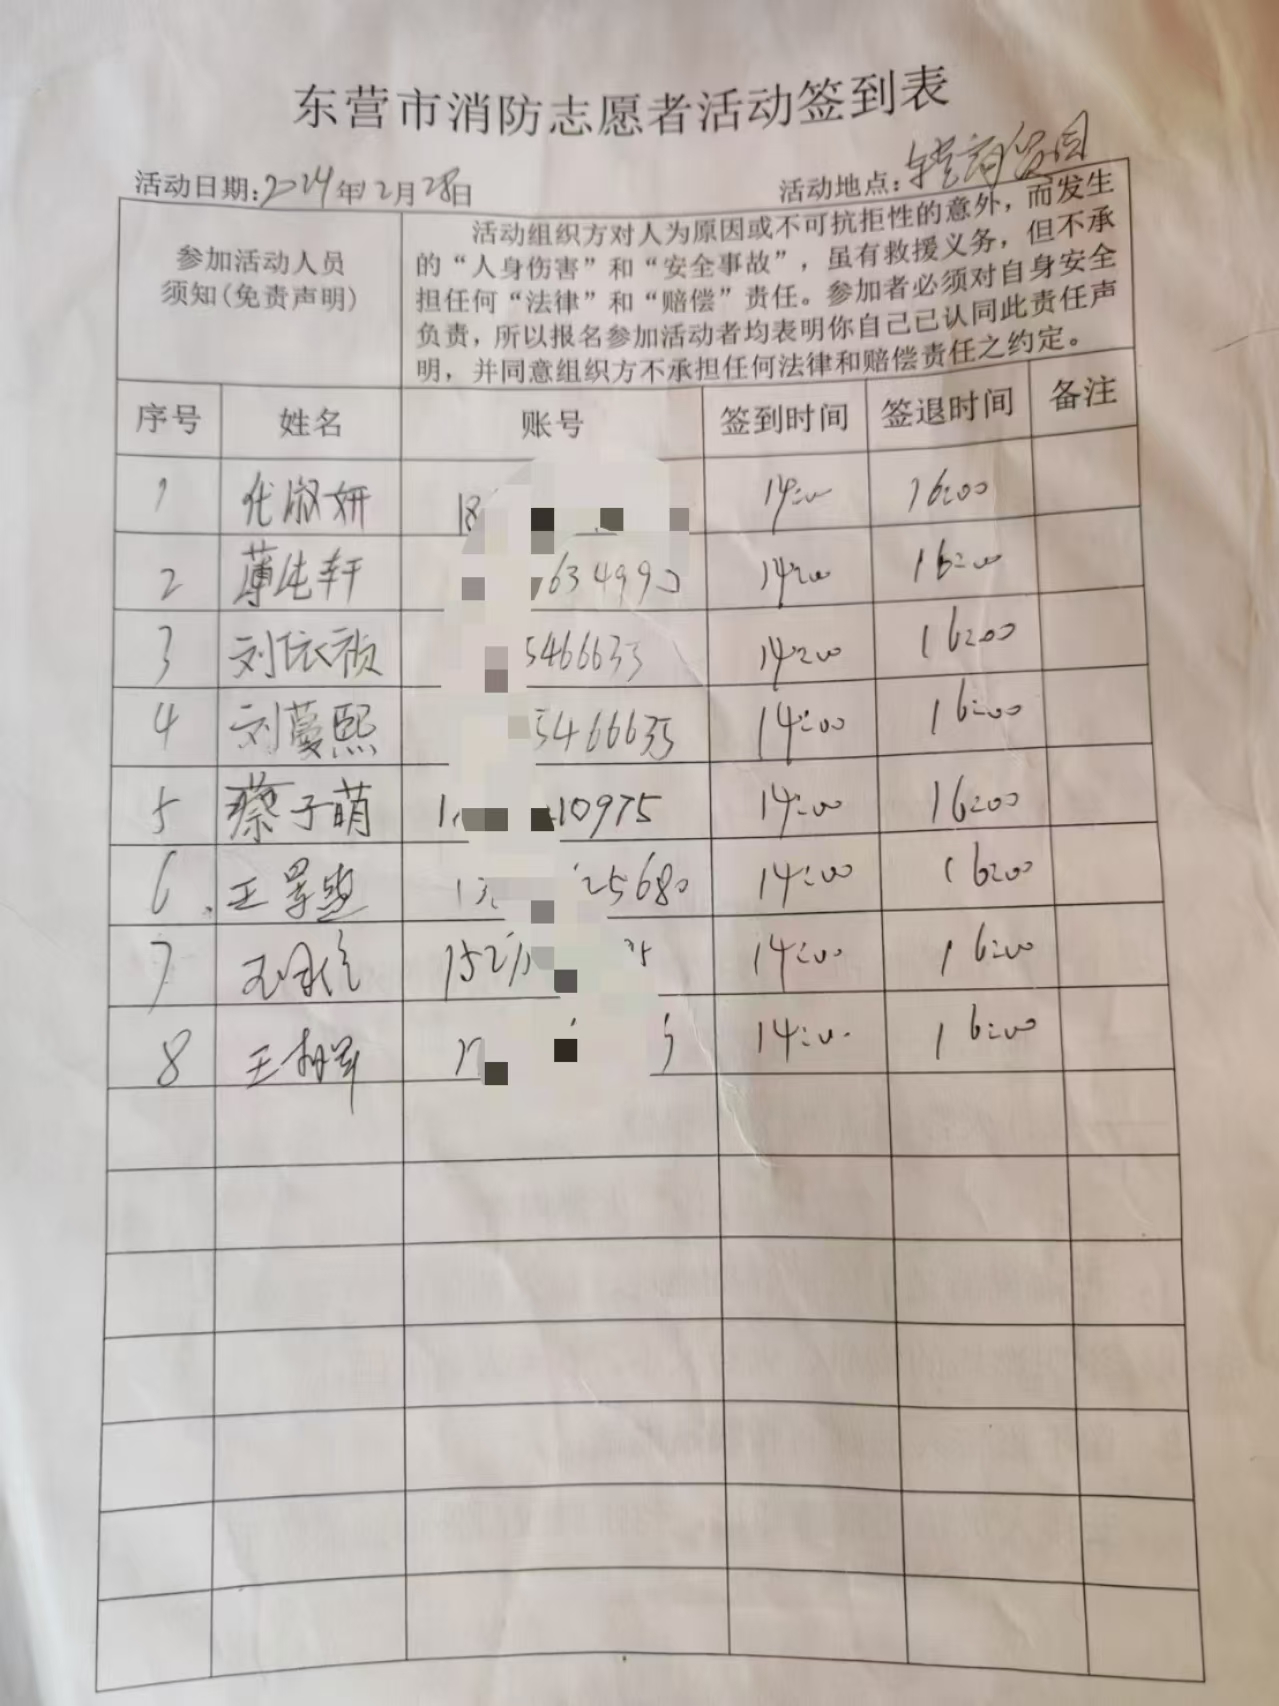 东营市消防志愿者活动签到表
活动日期:2024年12月28日
活动地点:
参加活动人员
须知(免责声明)
活动组织方对人为原因或不可抗拒性的意外，而发生
的“人身伤害”和“安全事故”，虽有救援义务，但不承
担任何“法律”和“赔偿”责任。参加者必须对自身安全
负责，所以报名参加活动者均表明你自己已认同此责任声
明，并同意组织方不承担任何法律和赔偿责任之约定。
序号 姓名 账号 签到时间 签退时间 备注
1 代淑妍 18 14:00 16:00
2 薄纯轩 634990 14:00 16:00
3 刘依祯 5466633 14:00 16:00
4 刘蔓熙 5466635 14:00 16:00
5 蔡子萌 1 10975 14:00 16:00
6 王 25680 14:00 16:00
7 152 14:00 16:00
8 王 14:00 16:00